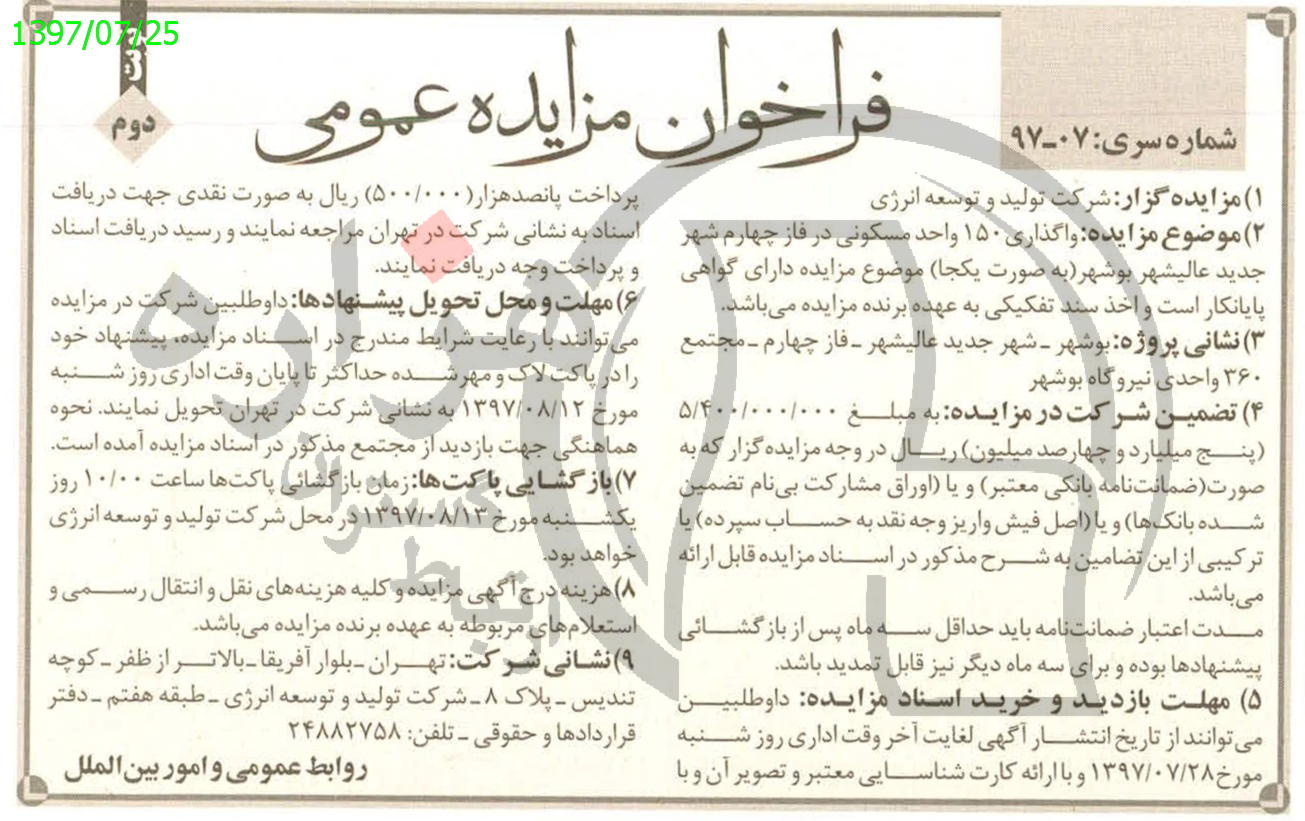 1397/07/25
نوبت
دوم
فراخوان مزایده عمومی
شماره سری: ۰۷-۹۷
۱) مزایده گزار: شرکت تولید و توسعه انرژی
۲) موضوع مزایده: واگذاری ۱۵۰ واحد مسکونی در فاز چهارم شهر
جدید عالیشهر بوشهر (به صورت یکجا) موضوع مزایده دارای گواهی
پایانکار است و اخذ سند تفکیکی به عهده برنده مزایده می‌باشد.
۳) نشانی پروژه: بوشهر - شهر جدید عالیشهر - فاز چهارم - مجتمع
۳۶۰ واحدی نیروگاه بوشهر
۴) تضمین شرکت در مزایده: به مبلغ ۵/۴۰۰/۰۰۰/۰۰۰
(پنج میلیارد و چهارصد میلیون) ریال در وجه مزایده گزار که به
صورت (ضمانت‌نامه بانکی معتبر) و یا (اوراق مشارکت بی‌نام تضمین
شده بانک‌ها) و یا (اصل فیش واریز وجه نقد به حساب سپرده) یا
ترکیبی از این تضامین به شرح مذکور در اسناد مزایده قابل ارائه
می‌باشد.
مدت اعتبار ضمانت‌نامه باید حداقل سه ماه پس از بازگشائی
پیشنهادها بوده و برای سه ماه دیگر نیز قابل تمدید باشد.
۵) مهلت بازدید و خرید اسناد مزایده: داوطلبین
می‌توانند از تاریخ انتشار آگهی لغایت آخر وقت اداری روز شنبه
مورخ ۱۳۹۷/۰۷/۲۸ و با ارائه کارت شناسایی معتبر و تصویر آن و با
پرداخت پانصدهزار (۵۰۰/۰۰۰) ریال به صورت نقدی جهت دریافت
اسناد به نشانی شرکت در تهران مراجعه نمایند و رسید دریافت اسناد
و پرداخت وجه دریافت نمایند.
۶) مهلت و محل تحویل پیشنهادها: داوطلبین شرکت در مزایده
می‌توانند با رعایت شرایط مندرج در اسناد مزایده، پیشنهاد خود
را در پاکت لاک و مهر شده حداکثر تا پایان وقت اداری روز شنبه
مورخ ۱۳۹۷/۰۸/۱۲ به نشانی شرکت در تهران تحویل نمایند. نحوه
هماهنگی جهت بازدید از مجتمع مذکور در اسناد مزایده آمده است.
۷) بازگشایی پاکت‌ها: زمان بازگشائی پاکت‌ها ساعت ۱۰/۰۰ روز
یکشنبه مورخ ۱۳۹۷/۰۸/۱۳ در محل شرکت تولید و توسعه انرژی
خواهد بود.
۸) هزینه درج آگهی مزایده و کلیه هزینه‌های نقل و انتقال رسمی و
استعلام‌های مربوطه به عهده برنده مزایده می‌باشد.
۹) نشانی شرکت: تهران - بلوار آفریقا - بالاتر از ظفر - کوچه
تندیس - پلاک ۸ - شرکت تولید و توسعه انرژی - طبقه هفتم - دفتر
قراردادها و حقوقی - تلفن: ۲۴۸۸۲۷۵۸
روابط عمومی و امور بین‌الملل
هزاره
گستران
ارتباط